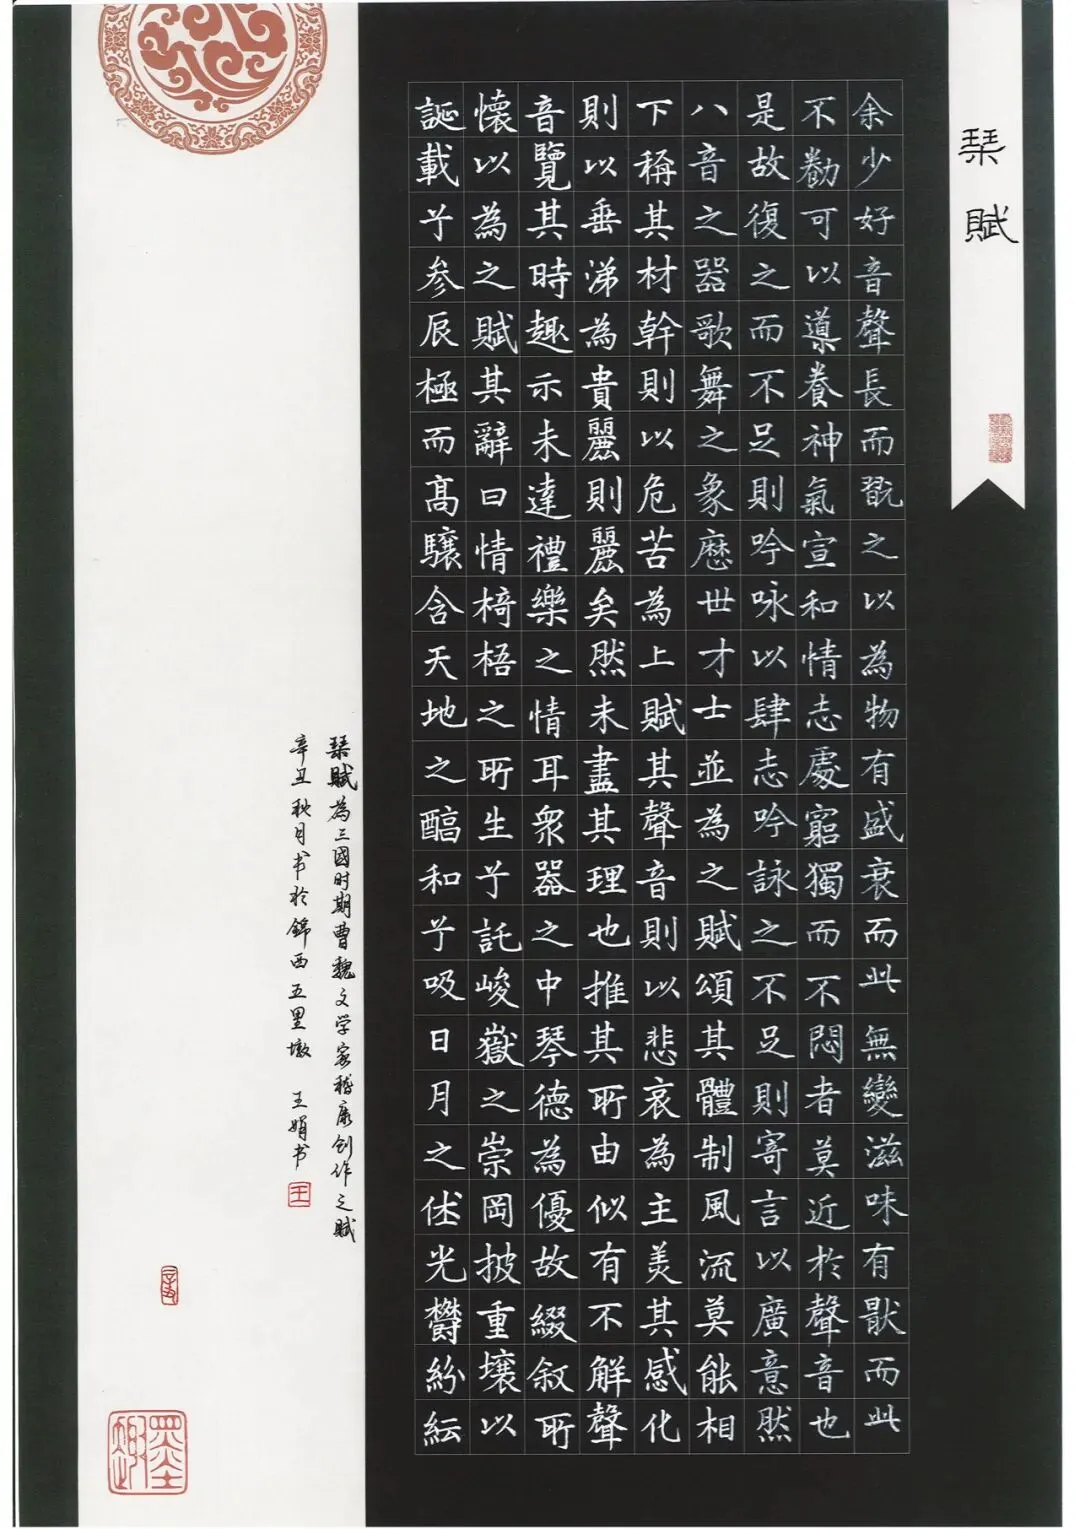 琹賦
余少好音聲長而翫之以為物有盛衰而此無變滋味有猒而此
不勌可以導養神氣宣和情志處窮獨而不悶者莫近於聲音也
是故復之而不足則吟咏以肆志吟詠之不足則寄言以廣意然
八音之器歌舞之象歷世才士並為之賦頌其體制風流莫能相
下稱其材幹則以危苦為上賦其聲音則以悲哀為主美其感化
則以垂涕為貴麗則麗矣然未盡其理也推其所由似有不解聲
音覽其時趣示未達禮樂之情耳衆器之中琴德為優故綴叙所
懷以為之賦其辭曰情椅梧之所生兮託峻嶽之崇岡披重壤以
誕載兮参辰極而高驤含天地之醕和兮吸日月之休光鬱紛紜
琹賦為三國时期曹魏文学家嵇康创作之賦
辛丑秋月书於錦西五里墩 王娟书
王
墨趣